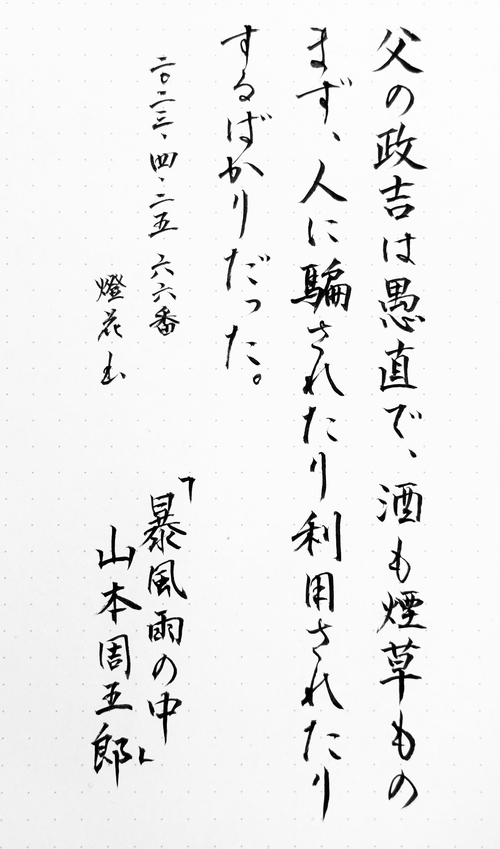 父の政吉は愚直で、酒も煙草もの
まず、人に騙されたり利用されたり
するばかりだった。
二〇二三、四・二五 六六番
燈花
「暴風雨の中」
山本周五郎